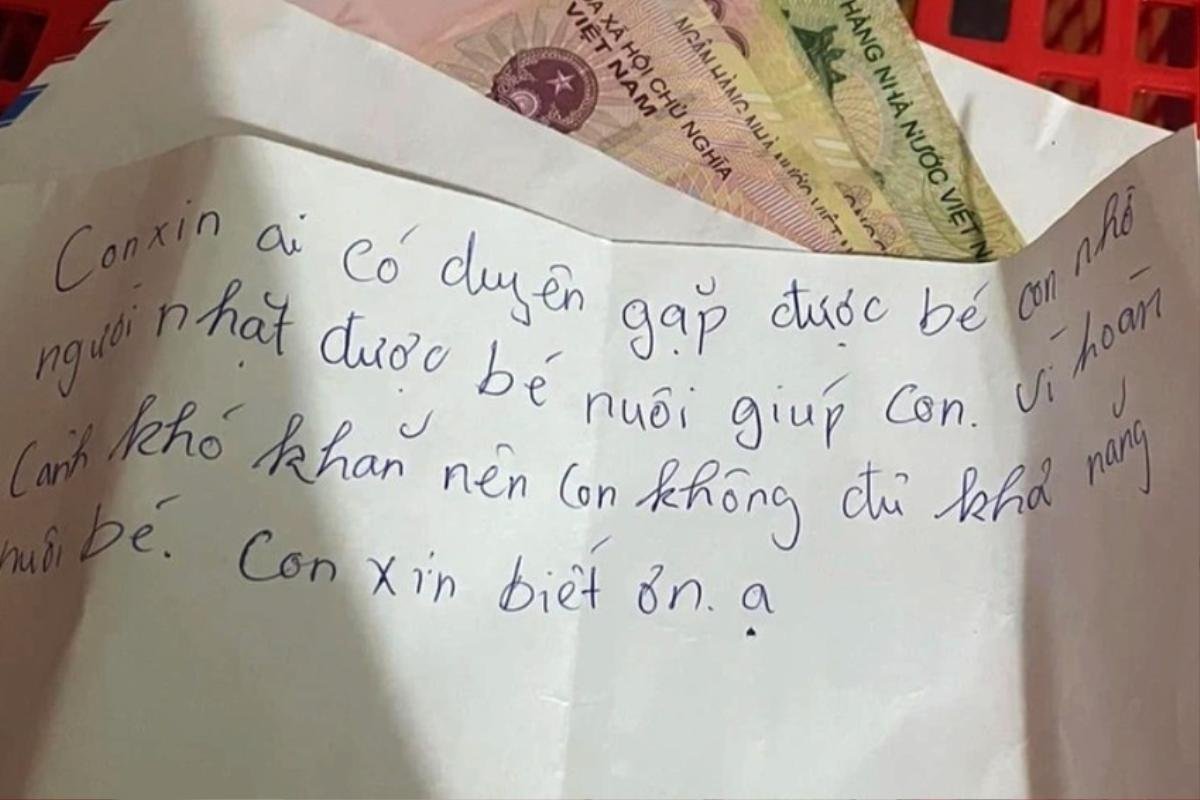 A XÃ HỘI CHỦ NGHĨA
VIỆT NAM
NGÂN HÀNG NHÀ NƯỚC VIỆT N
HÀNG NHÀ NƯỚC VIỆT N
Con xin ai có duyên gặp được bé con nhờ
người nhặt được bé nuôi giúp con. Vì hoàn
cảnh khó khăn nên con không đủ khả năng
nuôi bé. Con xin biết ơn. ạ